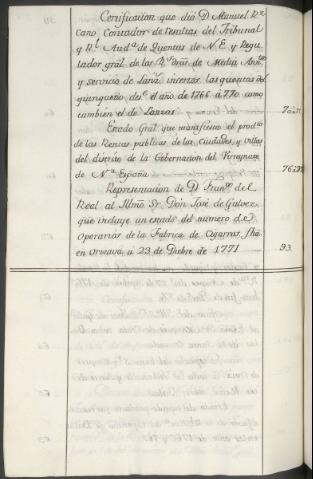 Certificacion que dió D. Manuel Rz.
Cano, Contador de resultas del Tribunal
y Rl. Auda. de Quentas de N. E. y Regu-
lador gral. de los Rs. dros. de Media Annta.
y servicio de Lanzs. incertas las quentas del
quinqueño desde el año de 1766 á 770 como
tambien el de Lanzas 70
Estado Gral. que manifiesta el prodto.
de las Rentas publicas de las ciudades, y villas
del distrito de la Gobernacion del Virreynato
de Na. España 76
Representacion de D. Franco. del
Real al Illmo. Sr. Don José de Galvez
que incluye un estado del numero de
Operarios de la Fabrica de Cigarros, fha.
en Orizava á 23 de Dicbre. de 1771 93.